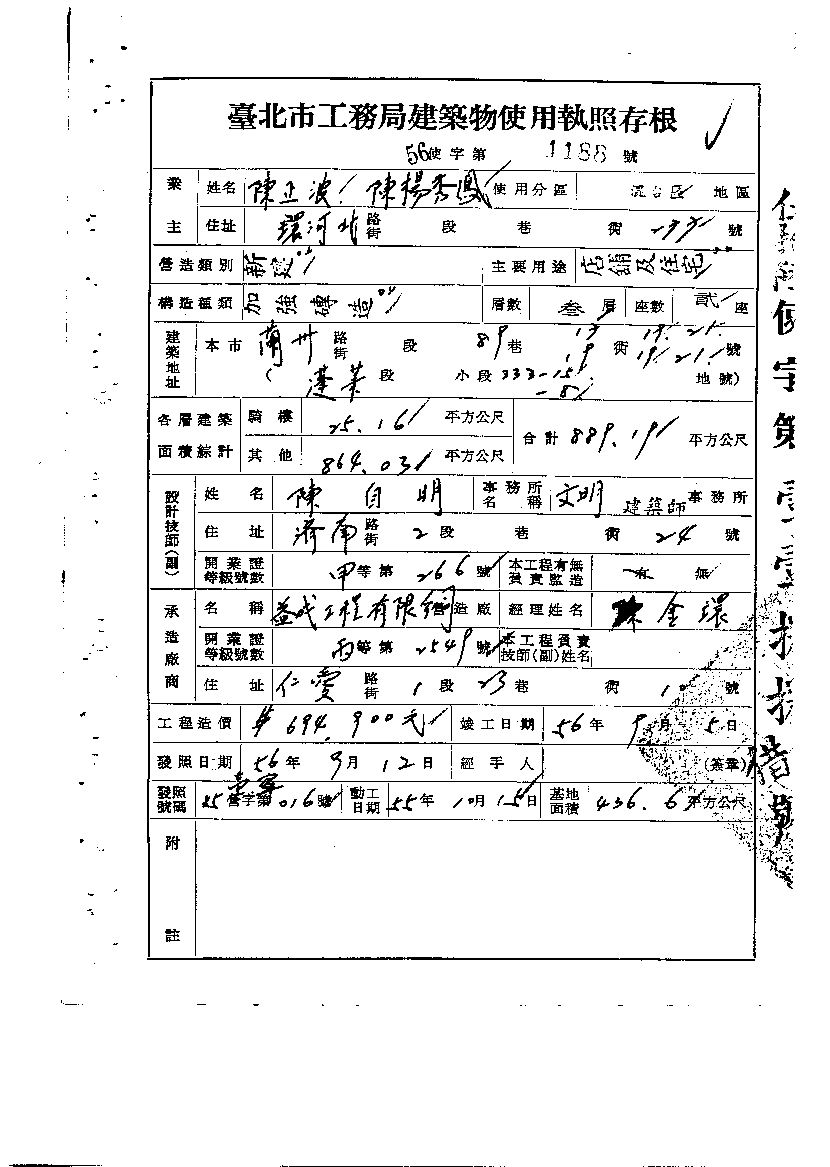 臺北市工務局建築物使用執照存根
56使字第 1188 號
業主 姓名 陳正波 陳楊秀鳳 使用分區 混合區 地區
住址 環河北 路街 段 巷 衖 號
營造類別 新建 主要用途 店舖及住宅
構造種類 加強磚造 層數 叁層 座數 貳座
建築地址 本市 蘭州 路街 段 89巷 衖 19. 21. 號
(蓬萊段 小段 333-15 -8 地號)
各層建築面積綜計 騎樓 25.16 平方公尺 合計 889.19 平方公尺
其他 864.03 平方公尺
設計技師(副) 姓名 陳自明 事務所名稱 文明建築師事務所
住址 濟南 路街 2段 巷 衖 24號
開業證等級號數 甲等第266號 本工程有無負責監造 有 無
承造廠商 名稱 益成工程有限 營造廠 經理姓名 陳金環
開業證等級號數 丙等第2549號 本工程負責技師(副)姓名
住址 仁愛 路街 1段 23巷 衖 10號
工程造價 $694,900元 竣工日期 56年9月5日
發照日期 56年9月12日 經手人 (簽章)
發照號碼 營字第016號 動工日期 55年10月15日 基地面積 436.63平方公尺
附註
使字第